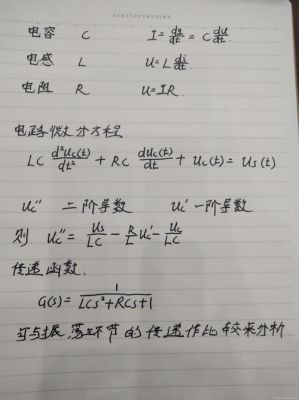 电容 C I = dq/dt = C du/dt.
电感 L U = L di/dt
电阻 R U = IR.
电路微分方程
LC d²uc(t)/dt² + RC duc(t)/dt + uc(t) = us(t)
uc'' 二阶导数 uc' 一阶导数
则 uc'' = us/LC - R/L uc' - uc/LC
传递函数.
G(s) = 1/(LCs²+RCs+1)
可与振荡环节的传递作比较来分析